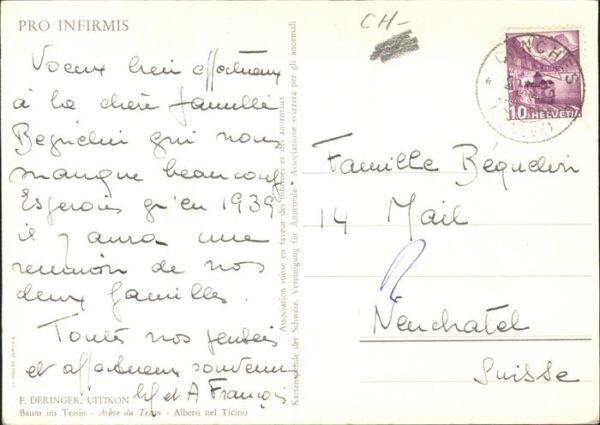 PRO INFIRMIS
CH-
Voeux bien affectueux
à la chère famille
Béguelin qui nous
manque beaucoup
Espérons qu'en 1939
il y aura une
réunion de nos
deux familles.
Toutes nos pensées
et affectueux souvenirs
et A François
F. DERINGER, UITIKON
Baum im Tessin - Arbre du Tessin - Albero nel Ticino
Association suisse en faveur des infirmes et des anormaux Associazione svizzera per gli anormali
Kartenspende der Schweiz. Vereinigung für Anormale
10 HELVETIA
CONCHES
(GENÈVE)
Famille Béguelin
14 Mail
Neuchatel
Suisse